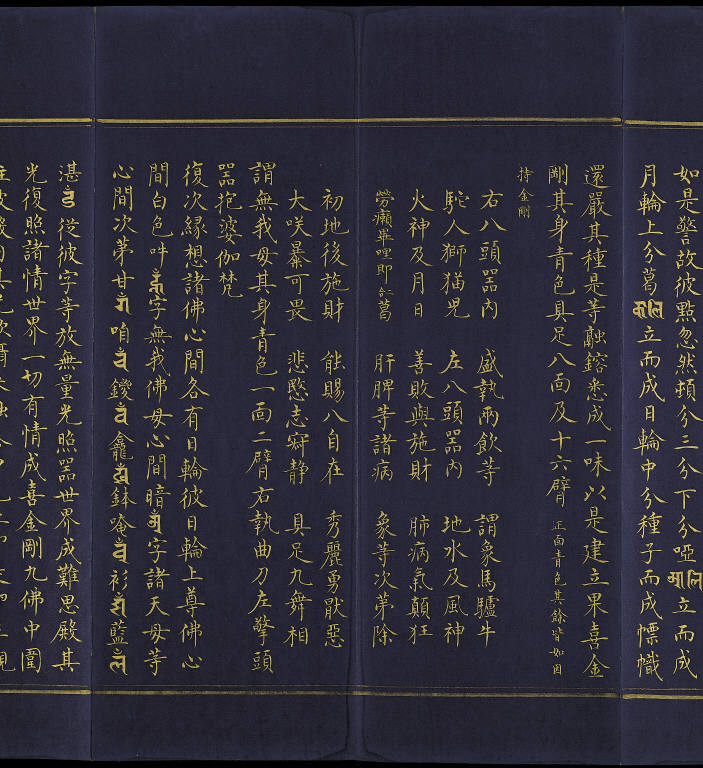 如是警故彼點忽然頓分三分下分啞ཨཱལི立而成
月輪上分葛ཀཱལི立而成日輪中分種子而成幖幟
還嚴其種是等融鎔悉成一味以是建立果喜金
剛其身青色具足八面及十六臂正面青色其餘皆如因
持金剛
右八頭器內 盛執兩飲等 謂象馬驢牛
駝人獅猫兒 左八頭器內 地水及風神
火神及月日 善敗與施財 肺病氣顛狂
勞癩畢哩即 肝脾等諸病 象等次第除
初地後施財 能賜八自在 秀麗勇猒惡
大咲暴可畏 悲愍志寂静 具足九舞相
謂無我母其身青色一面二臂右執曲刀左擎頭
器抱婆伽梵
復次縁想諸佛心間各有日輪彼日輪上尊佛心
間白色吽字無我佛母心間暗字諸天母等
心間次苐甘咱鑁龕鉢唥衫藍
湛從彼字等放無量光照器世界成難思殿其
光復照諸情世界一切有情成喜金剛九佛中圍